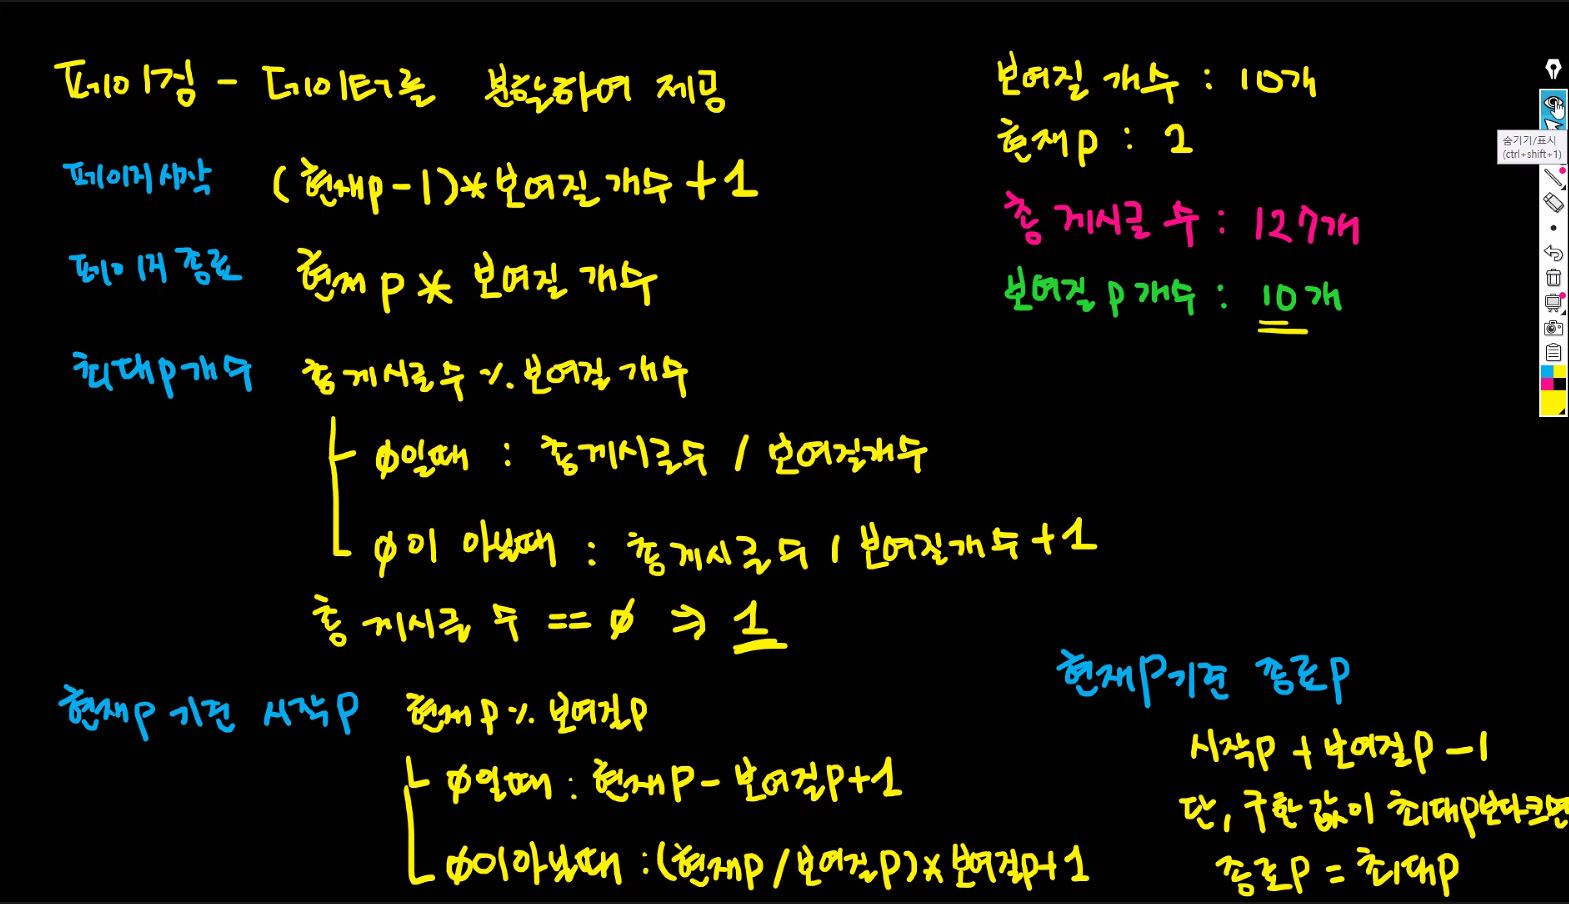 페이징 - 데이터를 분할하여 제공
페이지시작 (현재p-1)*보여질 개수+1
페이지 종료 현재 p * 보여질 개수
최대p개수 총게시글수 % 보여질 개수
0일때 : 총게시글수 / 보여질개수
0이 아닐때 : 총게시글수 / 보여질개수+1
총게시글 수 == 0 => 1
현재p 기준 시작p 현재p % 보여질p
0일때 : 현재p - 보여질p+1
0이아닐때 : (현재p/보여질p)*보여질p+1
보여질 개수 : 10개
현재p : 2
총 게시글 수 : 127개
보여질 p 개수 : 10개
현재p기준 종료p
시작p + 보여질p -1
단, 구한 값이 최대p보다크면
종료p = 최대p
숨기기/표시
(ctrl+shift+1)